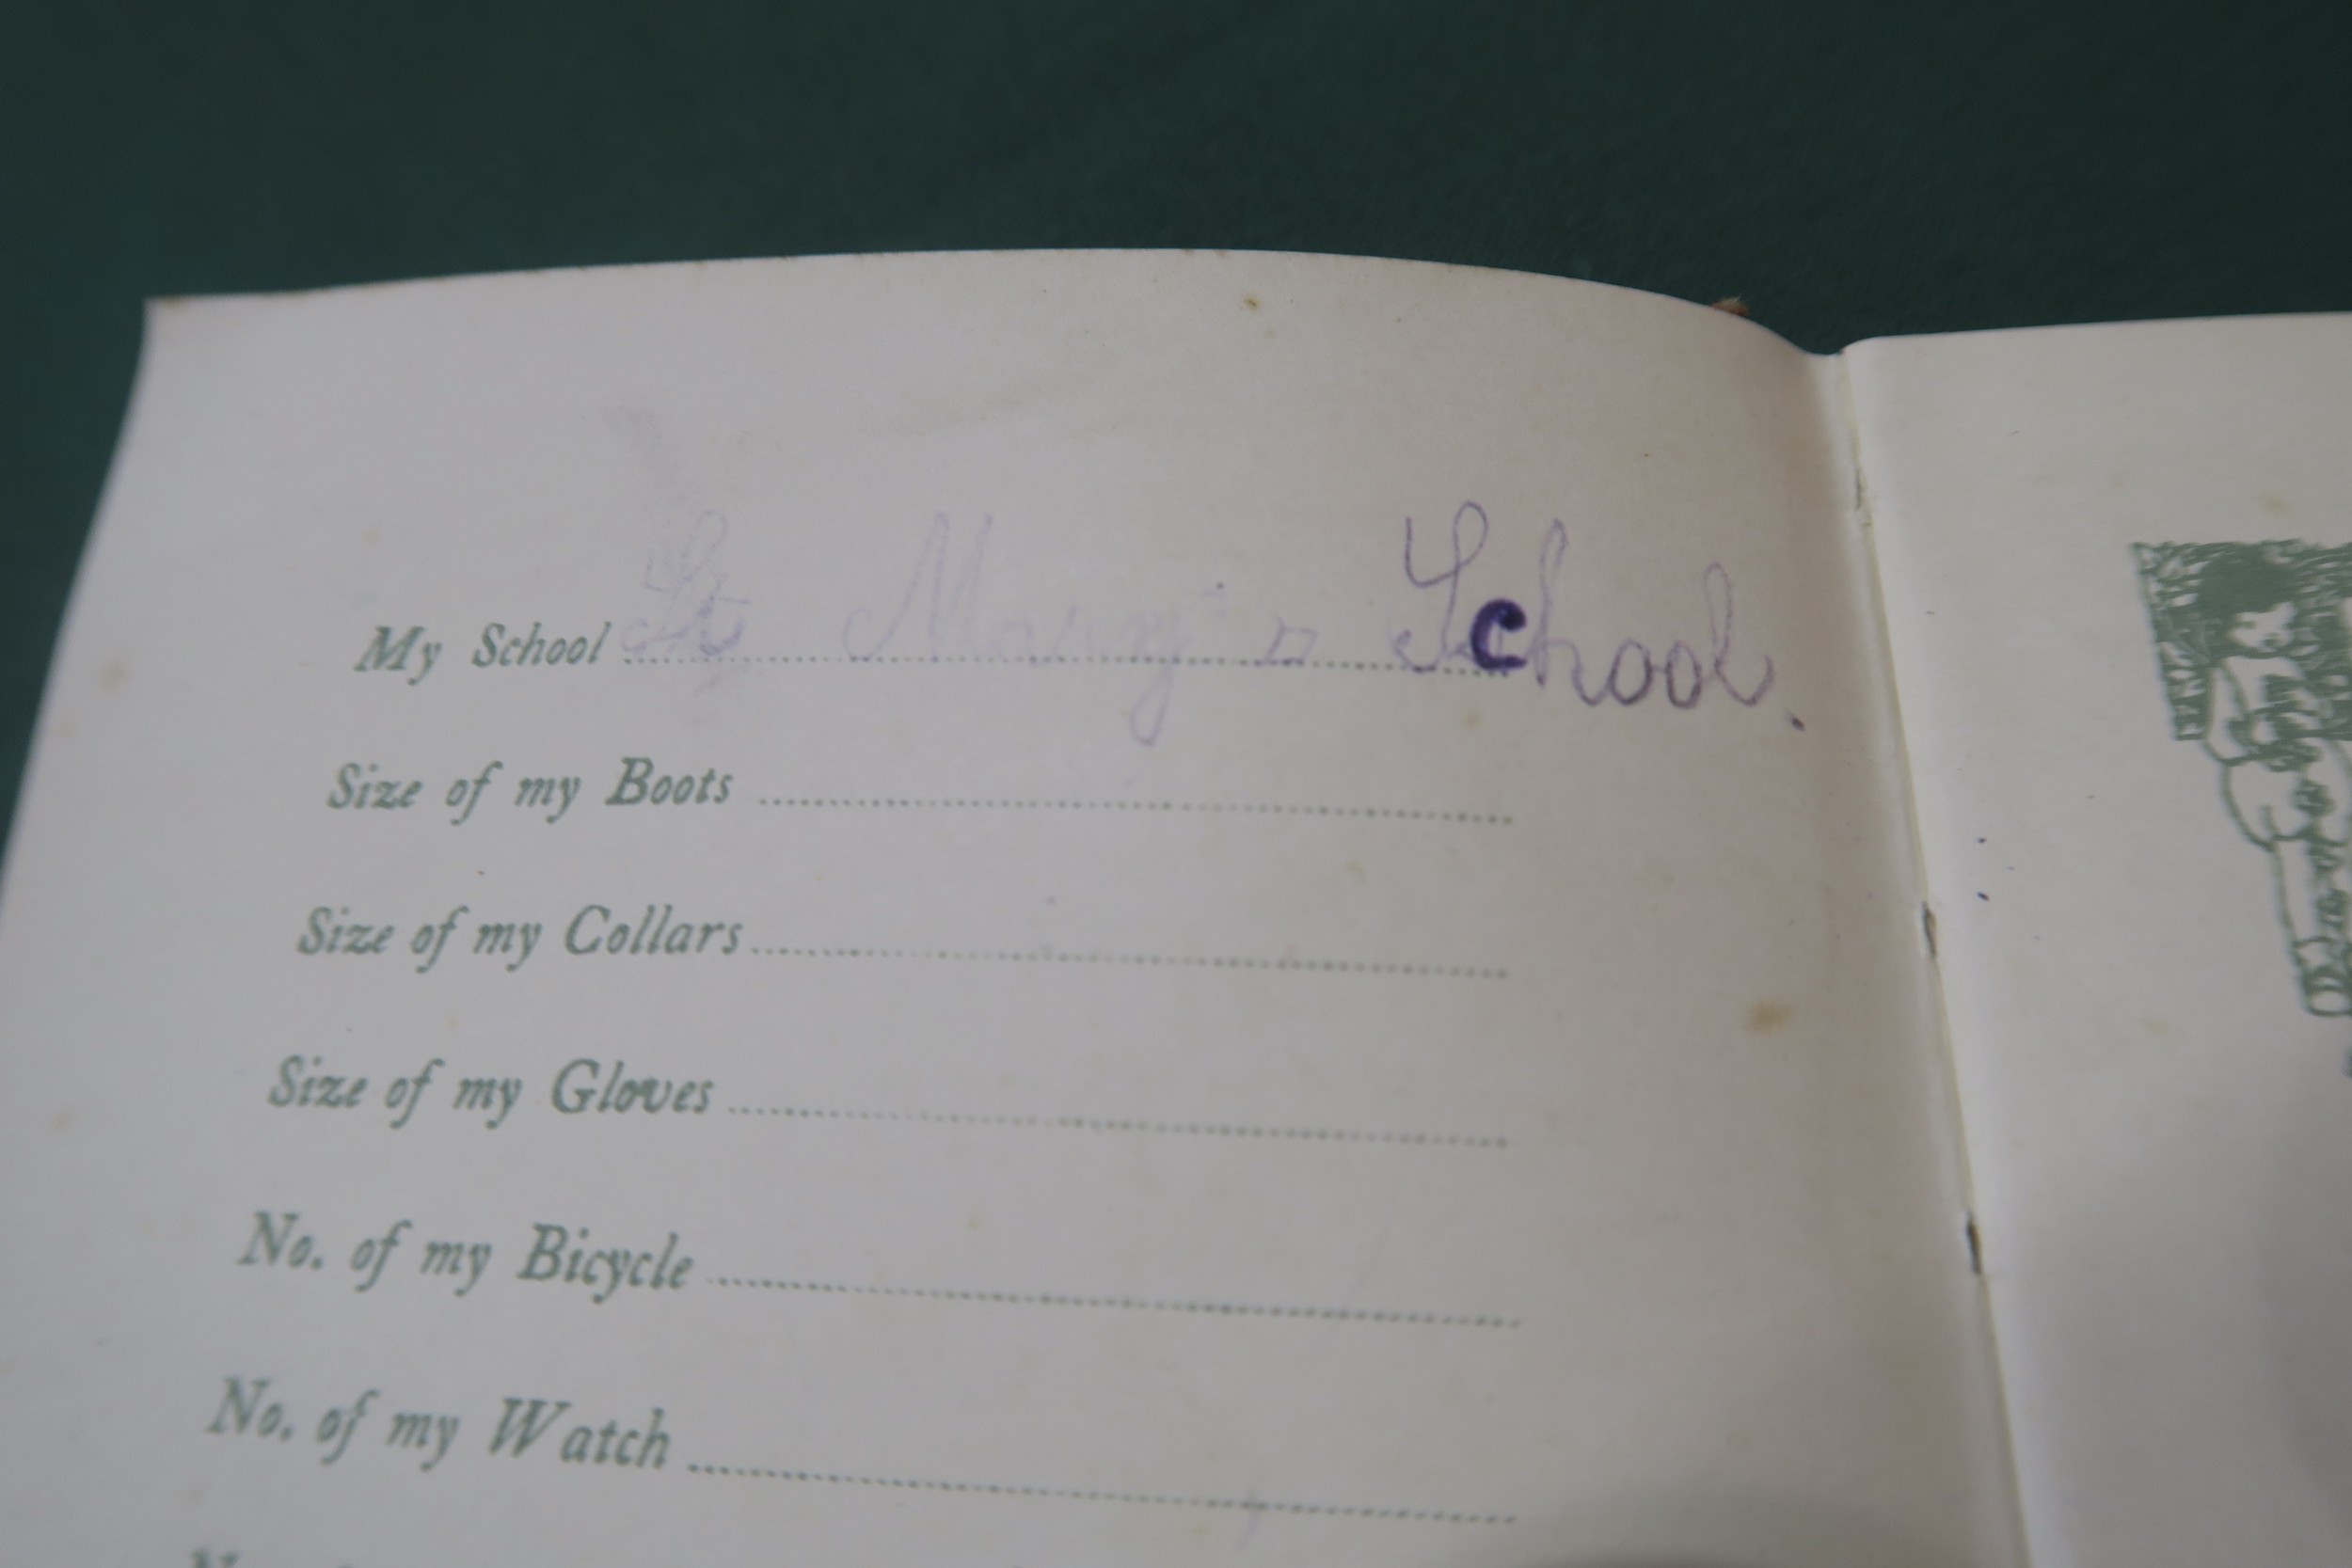 My School St Mary's School.
Size of my Boots
Size of my Collars
Size of my Gloves
No. of my Bicycle
No. of my Watch